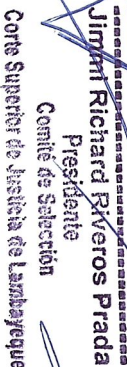 Jimmi Richard Riveros Prada
Presidente
Comité de Selección
Corte Superior de Justicia de Lambayeque